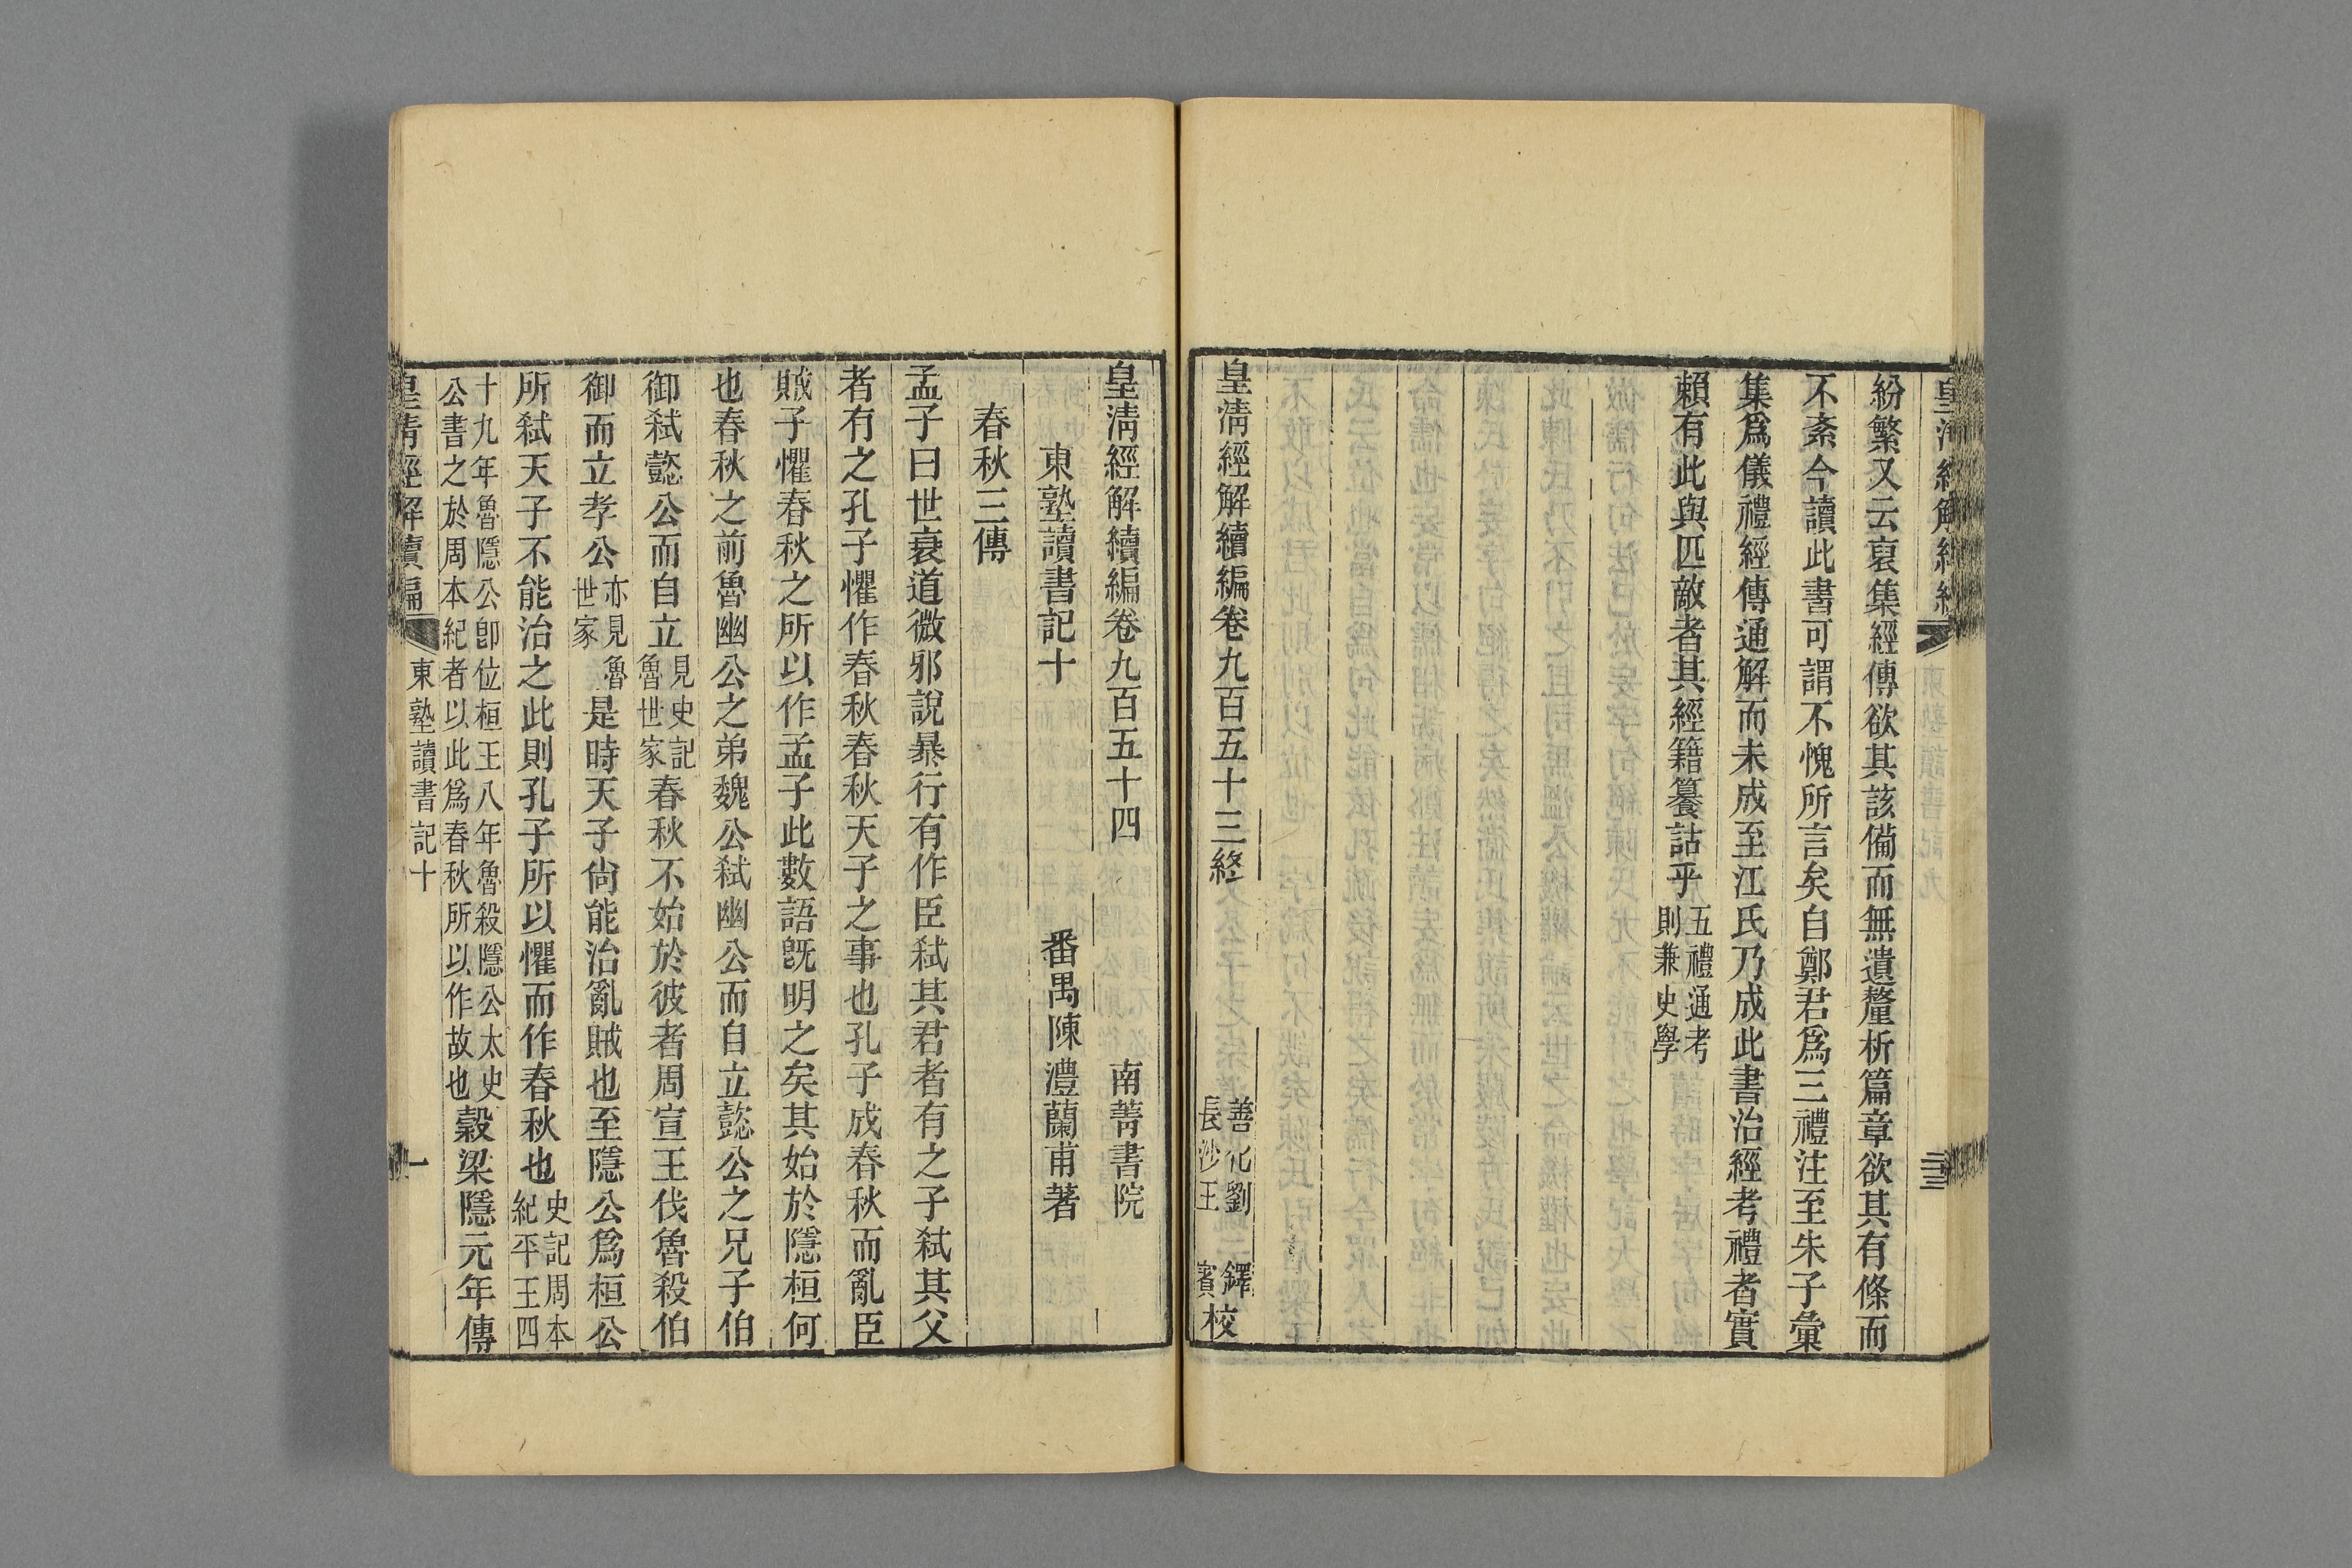 紛繁又云裒集經傳欲其該備而無遺釐析篇章欲其有條而
不紊今讀此書可謂不愧所言矣自鄭君爲三禮注至朱子彙
集爲儀禮經傳通解而未成至江氏乃成此書治經考禮者實
賴有此與匹敵者其經籍籑詁乎五禮通考
則兼史學
皇淸經解續編卷九百五十三終
善化劉鐸
長沙王賓校
皇淸經解續編卷九百五十四
南菁書院
東塾讀書記十
番禺陳澧蘭甫著
春秋三傳
孟子曰世衰道微邪說暴行有作臣弑其君者有之子弑其父
者有之孔子懼作春秋春秋天子之事也孔子成春秋而亂臣
賊子懼春秋之所以作孟子此數語旣明之矣其始於隱桓何
也春秋之前魯幽公之弟魏公弑幽公而自立懿公之兄子伯
御弑懿公而自立見史記
魯世家春秋不始於彼者周宣王伐魯殺伯
御而立孝公亦見魯
世家是時天子尙能治亂賊也至隱公爲桓公
所弑天子不能治之此則孔子所以懼而作春秋也史記周本
紀平王四
十九年魯隱公卽位桓王八年魯殺隱公太史
公書之於周本紀者以此爲春秋所以作故也穀梁隱元年傳
皇淸經解續編
東塾讀書記十
一